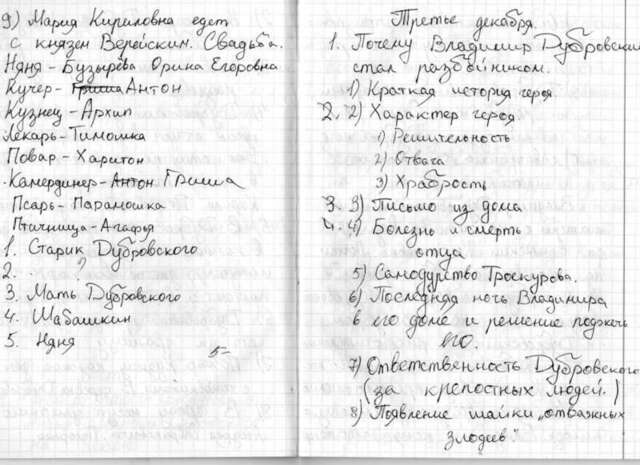 9) Мария Кириловна едет
с князем Верейским. Свадьба.
Няня - Бузырёва Орина Егоровна
Кучер - Гриша Антон
Кузнец - Архип
Лекарь - Тимошка
Повар - Харитон
Камердинер - Антон Гриша
Псарь - Парамошка
Птичница - Агафья
1. Старик Дубровского
2. ?
3. Мать Дубровского
4. Шабашкин
5. Няня
5-
Третье декабря.
1. Почему Владимир Дубровский
стал разбойником.
1) Краткая история героя
2. 2) Характер героя
1) Решительность
2) Отвага
3) Храбрость
3. 3) Письмо из дома
4. 4) Болезнь и смерть
отца
5) Самодурство Троекурова.
6) Последняя ночь Владимира
в его доме и решение поджечь
его.
7) Ответственность Дубровского
(за крепостных людей.)
8) Появление шайки „отважных
злодеев"